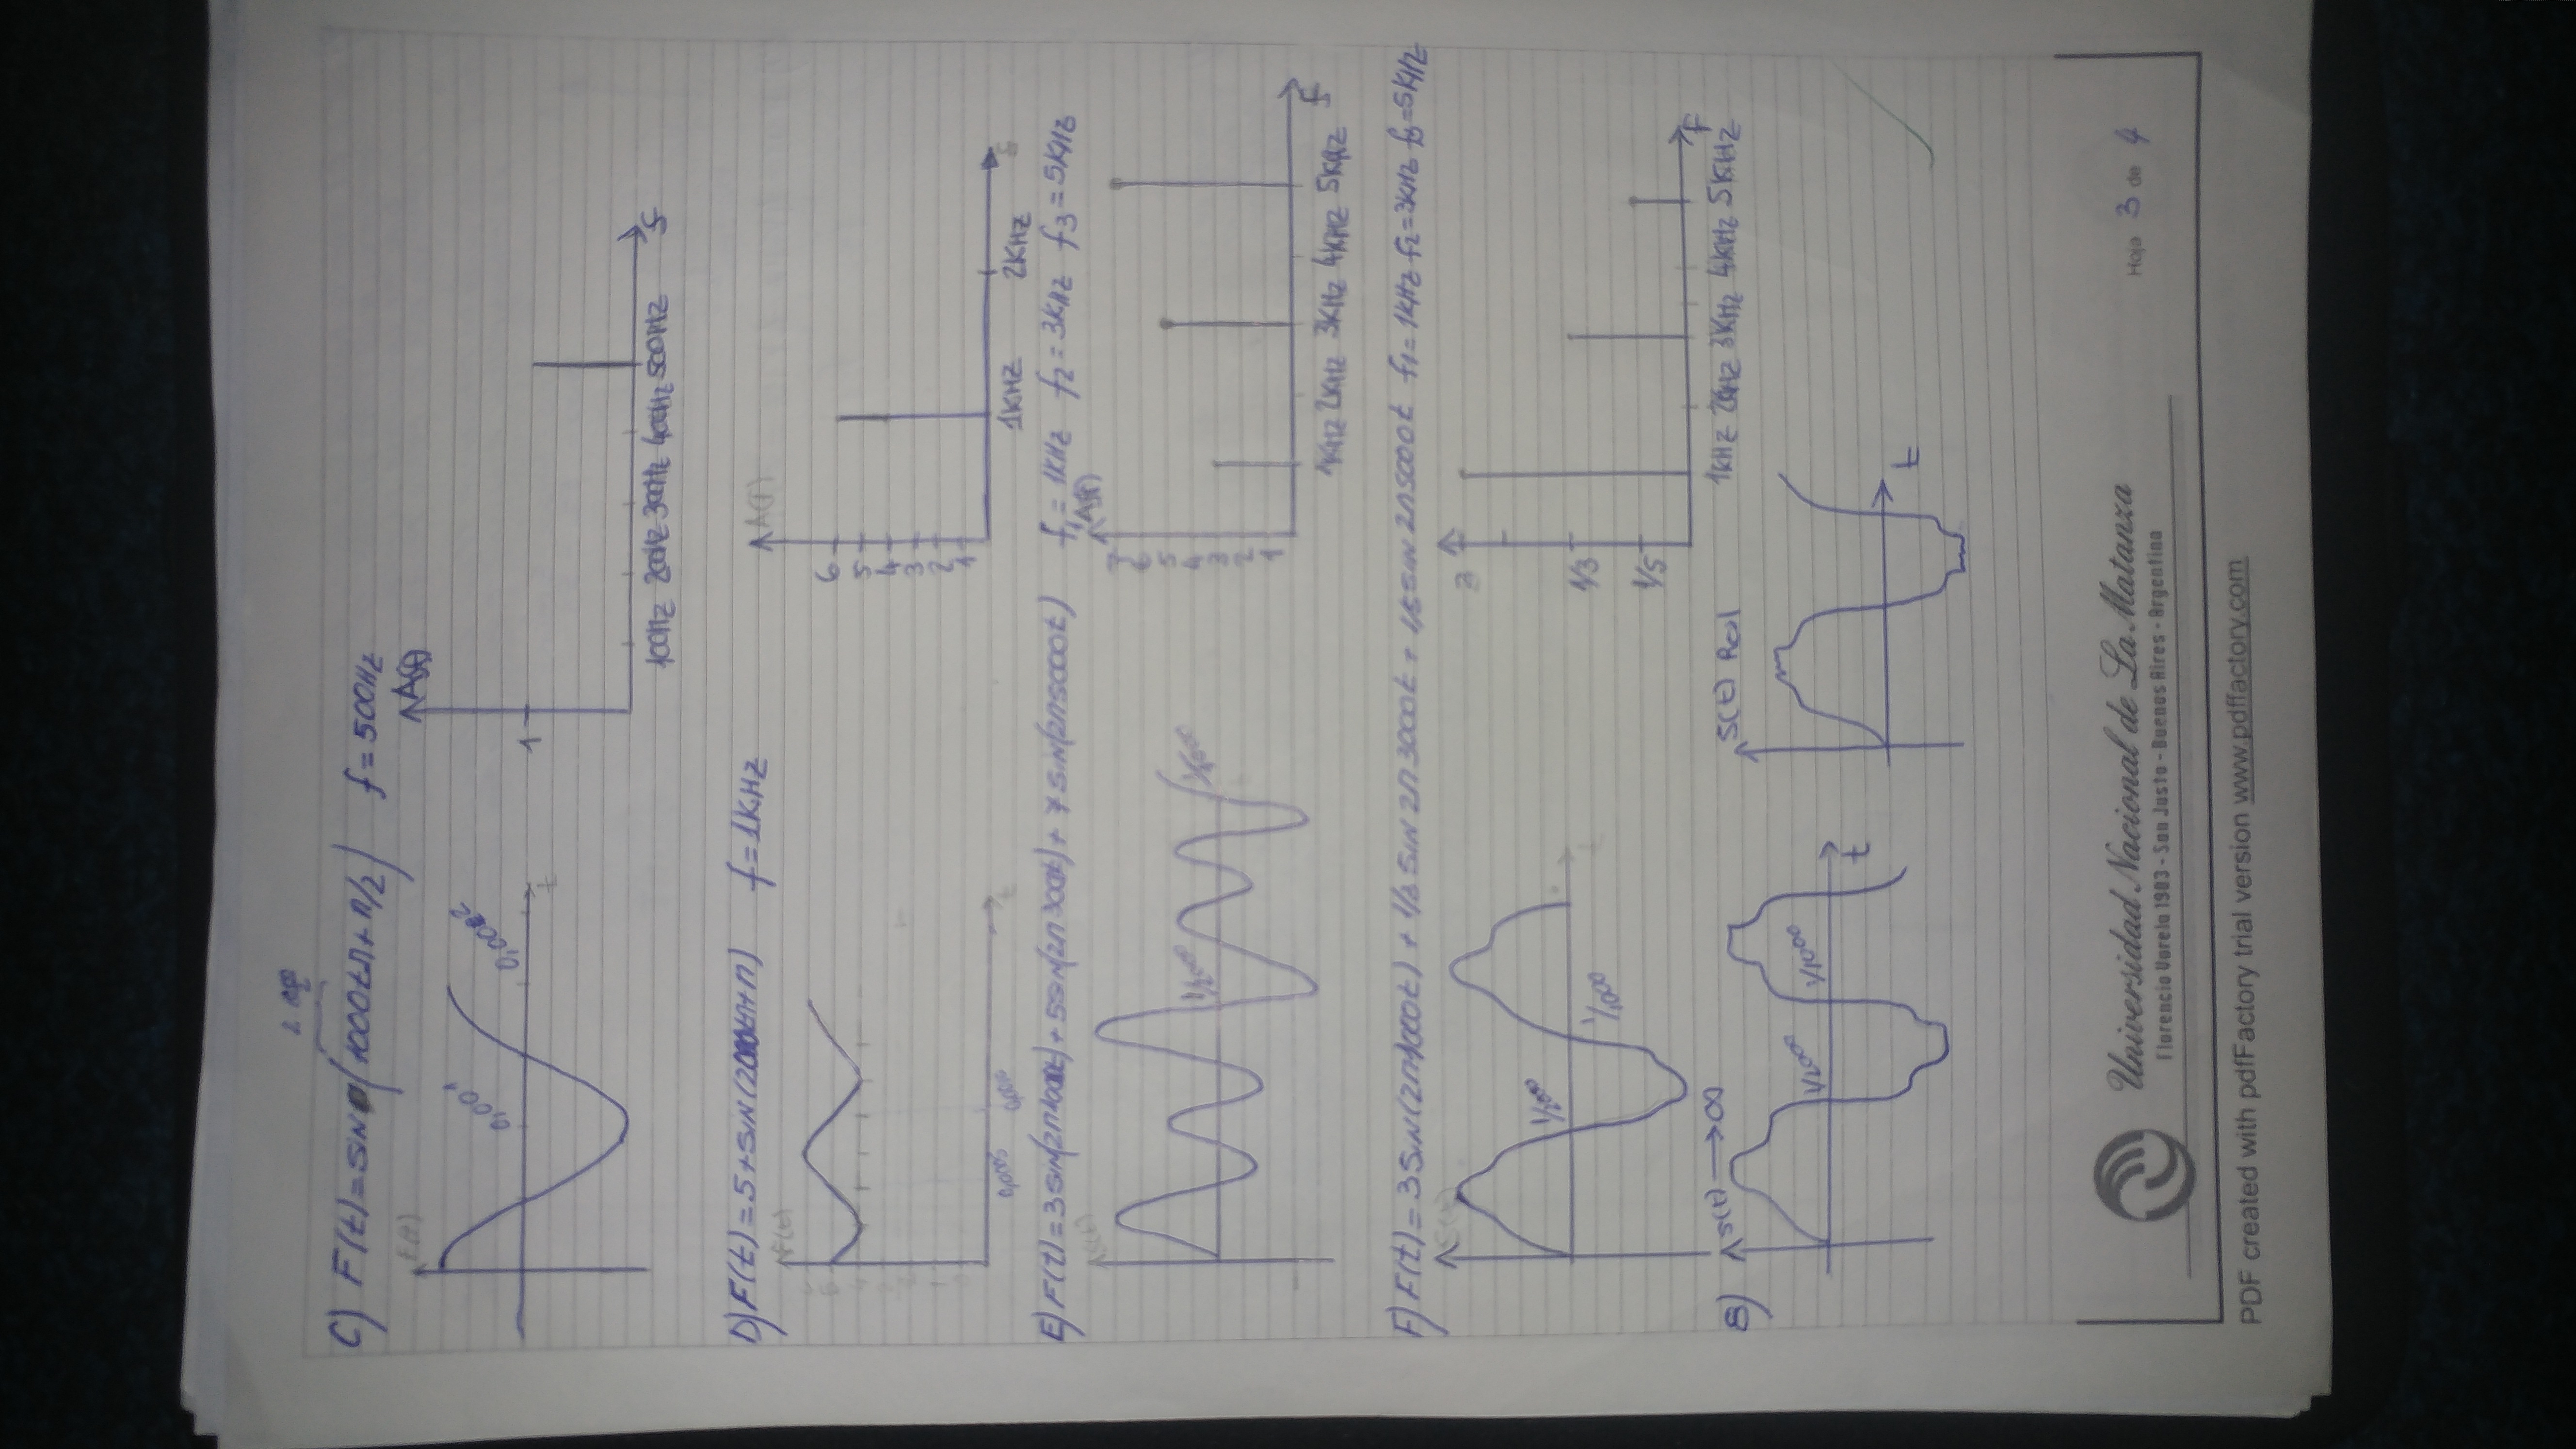 C) F(t)=SIN(1000tπ+π/2) f=500Hz
F(t)
0,001
0,002
t
A(f)
1
100Hz 200Hz 300Hz 400Hz 500Hz f
D) F(t)=5+SIN(2000tπ+π) f=1KHz
F(t)
0,0005 0,0010 t
A(f)
6
5
4
3
2
1
1KHz 2KHz f
E) F(t)=3SIN(2π1000t)+5SIN(2π3000t)+7SIN(2π5000t) f1=1KHz f2=3KHz f3=5KHz
S(t)
1/2000
A(f)
7
6
5
4
3
2
1
1KHz 2KHz 3KHz 4KHz 5KHz f
F) F(t)=3SIN(2π1000t)+1/3SIN2π3000t+1/5SIN2π5000t f1=1KHz f2=3KHz f3=5KHz
S(t)
1/2000
1/1000
t
3
1/3
1/5
1KHz 2KHz 3KHz 4KHz 5KHz F
S(t)→∞
1/2000 1/1000
t
S(t) Real
t
Universidad Nacional de La Matanza
Florencio Varela 1903 - San Justo - Buenos Aires - Argentina
Hoja 3 de 4
PDF created with pdfFactory trial version www.pdffactory.com